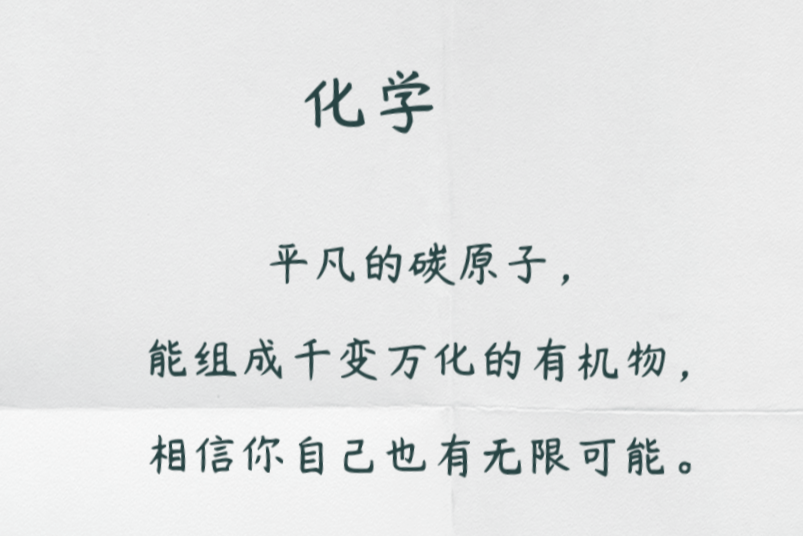 化学
平凡的碳原子，
能组成千变万化的有机物，
相信你自己也有无限可能。